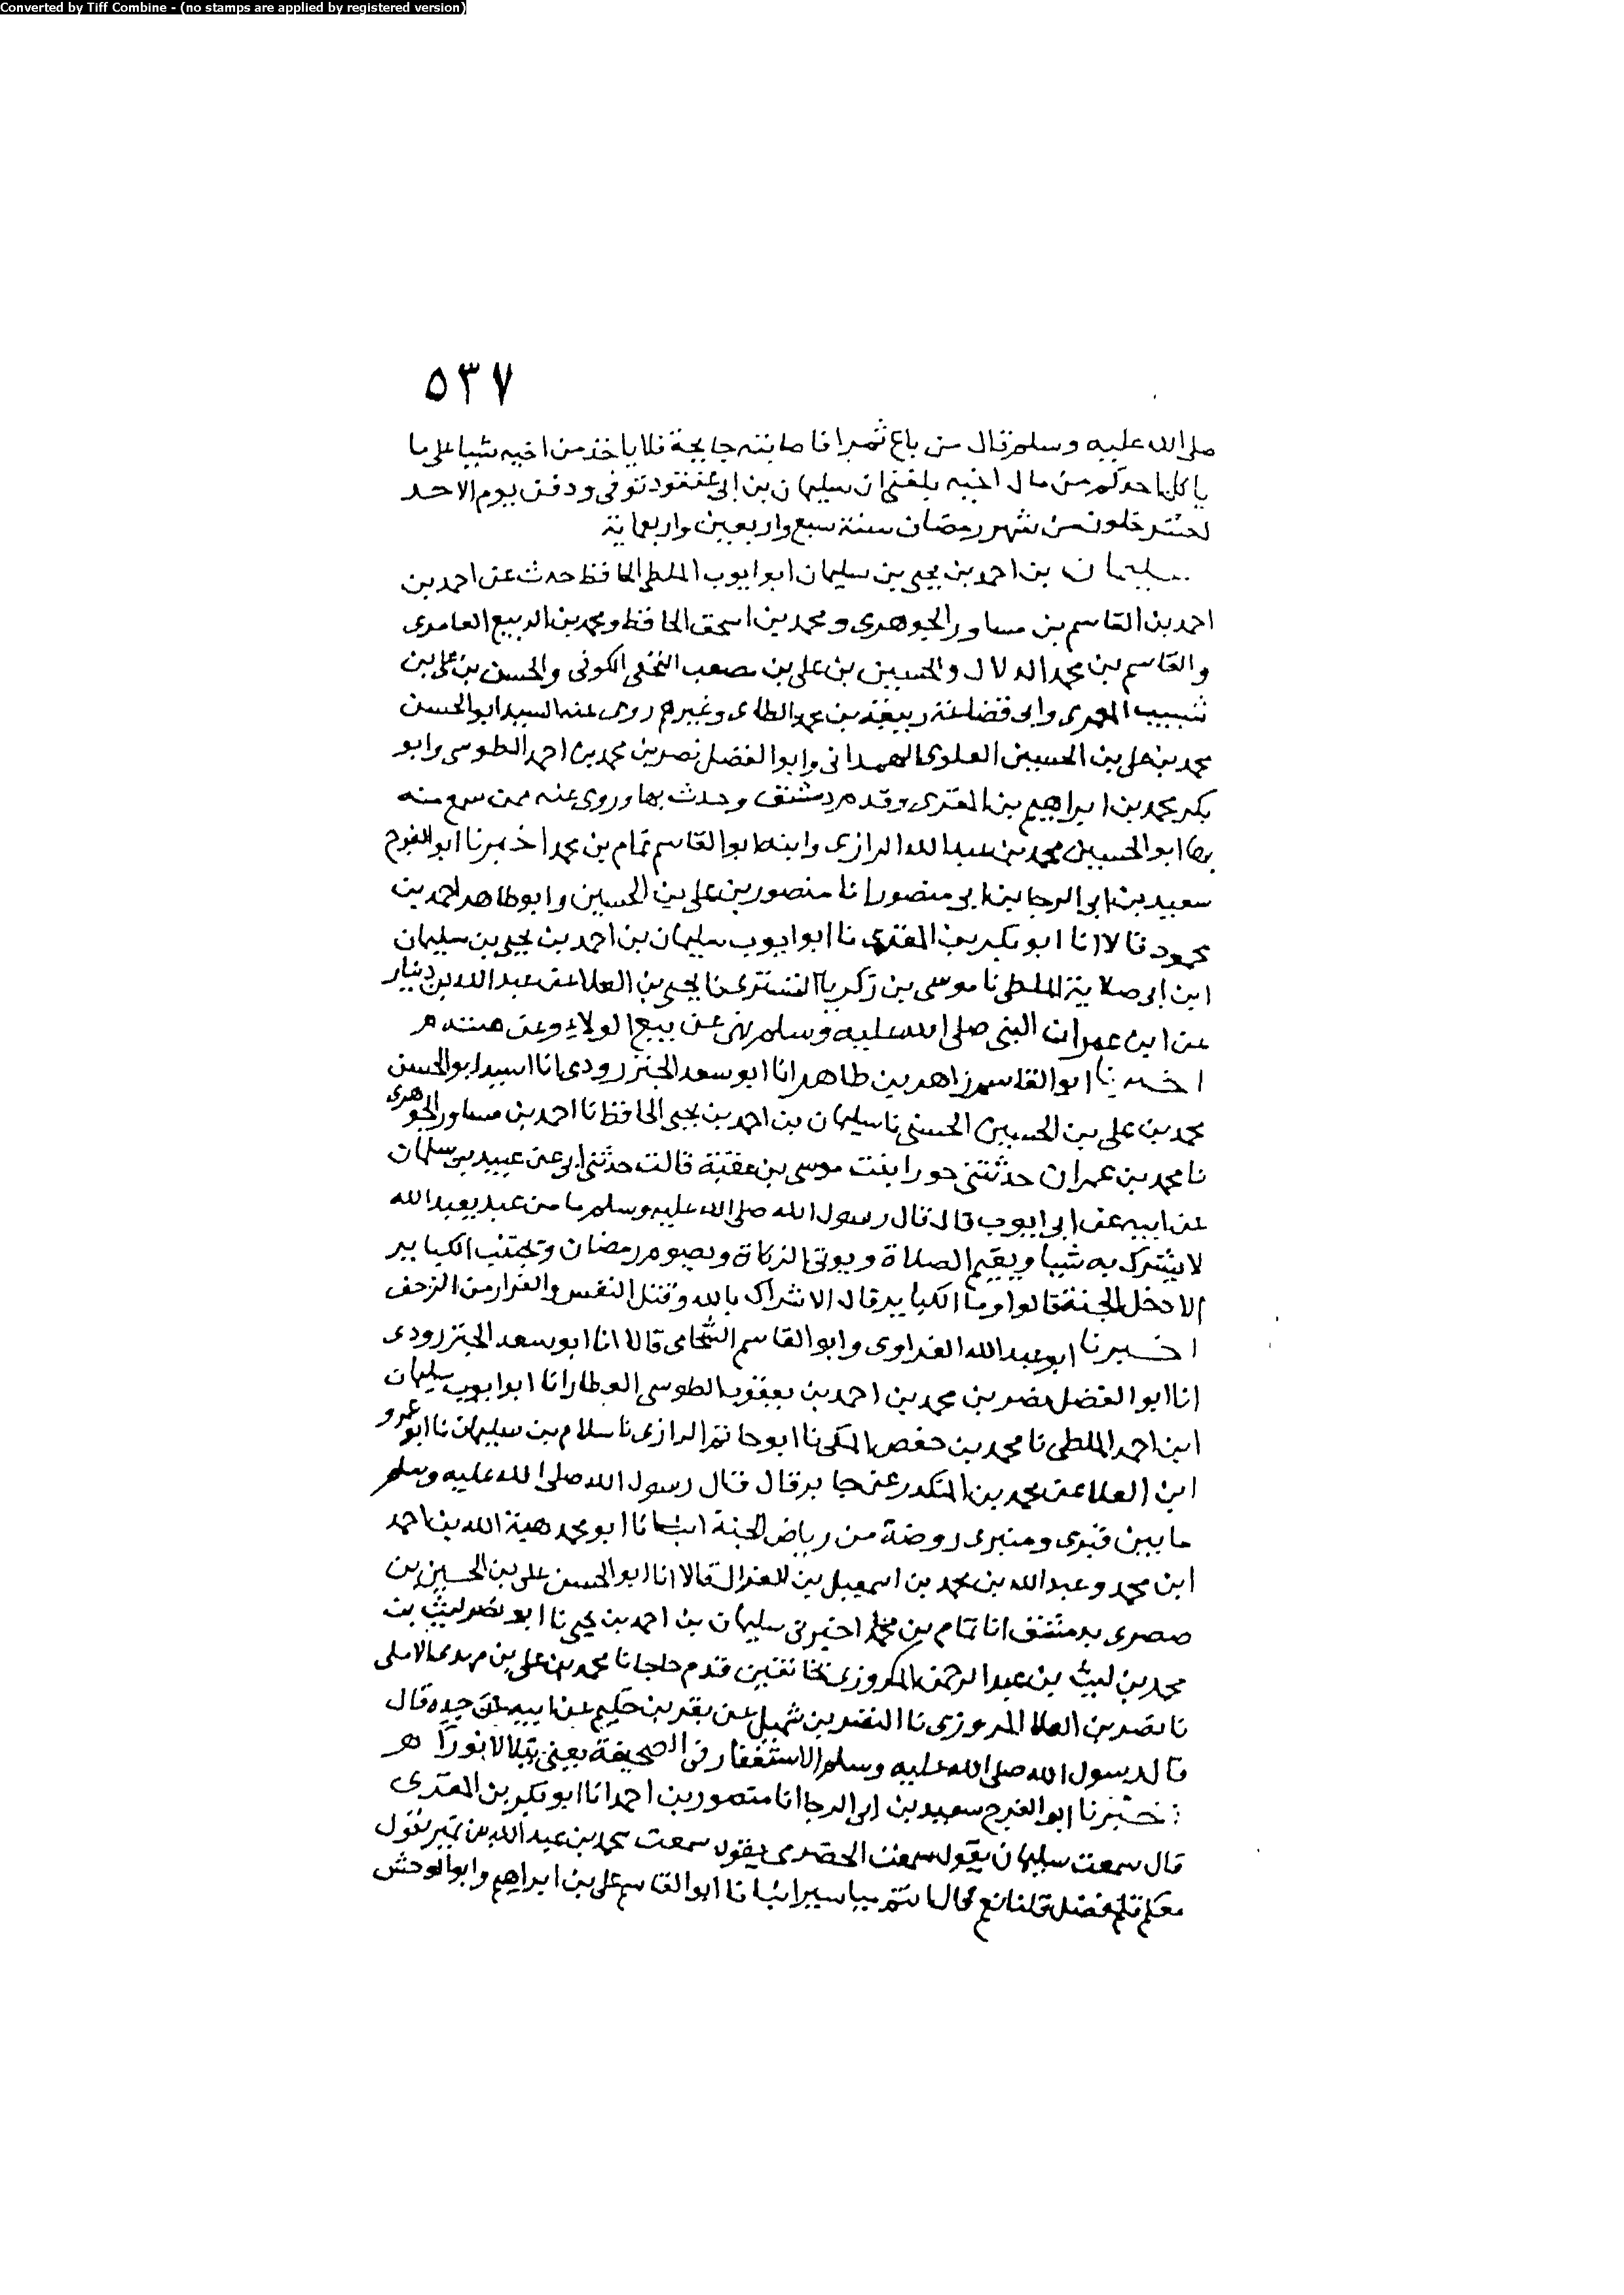 Converted by Tiff Combine - (no stamps are applied by registered version)
٥٣٧
صلى الله عليه وسلم قال من باع ثمرا فاصابته جايحة فلا ياخذ من اخيه شيا على ما
ياكل احدكم من مال اخيه بلغني ان سليمان بن ابي عنقود توفي ودفن يوم الاحد
لعشر خلون من شهر رمضان سنة سبع واربعين واربعماية
سليمان بن احمد بن يحيى بن سليمان ابو ايوب الملطي الحافظ حدث عن احمد بن
احمد بن القاسم بن مساور الجوهري ومحمد بن اسحق الحافظ ومحمد بن الربيع العامري
والقاسم بن محمد الدلال والحسين بن علي بن مصعب النخعي الكوفي والحسن بن علي بن
شبيب المعمري وابي قضاعة ربيعة بن محمد الطاى وغيرهم روى عنه السيد ابو الحسن
محمد بن علي بن الحسين العلوي الهمداني وابو الفضل نصر بن محمد بن احمد الطوسي وابو
بكر محمد بن ابراهيم بن المقري وقدم دمشق وحدث بها وروى عنه ممن سمع منه
بها ابو الحسين محمد بن عبد الله الرازي وابنه ابو القاسم تمام بن محمد اخبرنا ابو الفرج
سعيد بن ابي الرجا بن ابي منصور انا منصور بن علي بن الحسين وابو طاهر احمد بن
محمود قالا انا ابو بكر بن المقري نا ابو ايوب سليمان بن احمد بن يحيى بن سليمان
ابن ابي صلاية الملطي نا موسى بن زكريا التستري نا يحيى بن العلا عن عبد الله بن دينار
عن ابن عمر ان النبي صلى الله عليه وسلم نهى عن بيع الولاء وعن هبته م
اخبرنا ابو القاسم زاهر بن طاهر انا ابو سعد الجنزرودي انا السيد ابو الحسن
محمد بن علي بن الحسين الحسني نا سليمان بن احمد بن يحيى الحافظ نا احمد بن مساور الجوهري
نا محمد بن عمران حدثتني حورا بنت موسى بن عقبة قالت حدثني ابي عن عبيد بن سلمان
عن ابيه عن ابي ايوب قال قال رسول الله صلى الله عليه وسلم ما من عبد يعبد الله
لا يشرك به شيا ويقيم الصلاة ويوتي الزكاة ويصوم رمضان وتجتنب الكباير
الا دخل الجنة قالوا وما الكباير قال الاشراك بالله وقتل النفس والفرار من الزحف
اخبرنا ابو عبد الله الفراوي وابو القاسم الشحامي قالا انا ابو سعد الجنزرودي
انا ابو الفضل نصر بن محمد بن احمد بن يعقوب الطوسي العطار انا ابو ايوب سليمان
ابن احمد الملطي نا محمد بن حفص المكي نا ابو حاتم الرازي نا سلام بن سليمان نا ابو عمرو
ابن العلا عن محمد بن المنكدر عن جابر قال قال رسول الله صلى الله عليه وسلم
ما بين قبري ومنبري روضة من رياض الجنة انبانا ابو محمد هبة الله بن احمد
ابن محمد وعبد الله بن محمد بن اسمعيل بن الغزال قالا انا ابو الحسن علي بن الحسين بن
صصري بدمشق انا تمام بن محمد اخبرني سليمان بن احمد بن يحيى نا ابو نصر ليث بن
محمد بن ليث بن عبد الرحمن المروزي بخانقين قدم حاجا نا محمد بن علي بن مهدي الاملي
نا نصر بن العلا المروزي نا النضر بن شميل عن بهز بن حكيم عن ابيه عن جده قال
قال رسول الله صلى الله عليه وسلم الاستغفار في الصحيفة يعني يتلالا نورا هـ
اخبرنا ابو الفرج سعيد بن ابي الرجا انا منصور بن احمد انا ابو بكر بن المقري
قال سمعت سليمان يقول سمعت الحضرمي يقول سمعت محمد بن عبد الله بن نمير يقول
معكم قلم فضل قلنا نعم قال انبانا ابو القاسم علي بن ابراهيم وابو الوحش